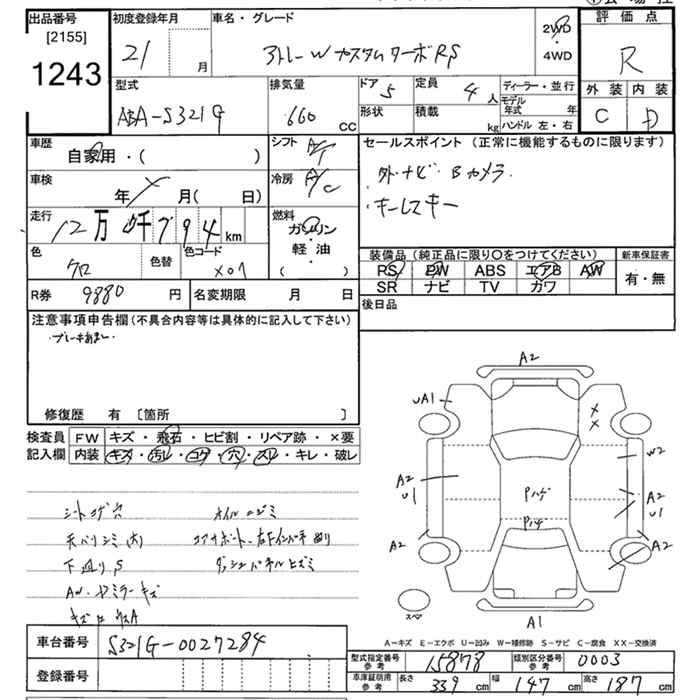 出品番号 初度登録年月 車名・グレード 評価点
[2155]
1243
21 月 アトレーW カスタムターボRS 2WD・4WD R
型式 排気量 ドア 5 定員 4人 ディーラー・並行
ABA-S321G 660 CC 形状 積載 kg モデル年式 年 ハンドル 左・右
外装 内装
C D
車歴 自家用・( ) シフト A/T セールスポイント (正常に機能するものに限ります)
車検 年 月( 日) 冷房 A/C
社外ナビ Bカメラ
キーレスキー
走行 12万 千794km 燃料 ガソリン・軽油 ( )
色 クロ 色替 色コード X07
装備品 (純正品に限り○をつけてください) 新車保証書
RS PW ABS エアB AW 有・無
SR ナビ TV ガワ
R券 9880円 名変期限 月 日 後日品
注意事項申告欄(不具合内容等は具体的に記入して下さい)
修復歴 有 [箇所 ]
検査員記入欄 FW キズ・飛石・ヒビ割・リペア跡・×要
内装 キズ・汚レ・コゲ・穴・スレ・キレ・破レ
シートコゲ穴 オイルニジミ
天バリシミ(大)
下廻りS
AW・ドアミラーキズ
A2
UA1
W2
A2
U1
A2
U1
Pハゲ
A2
A2
スペア
A1
A-キズ E-エクボ U-凹み W-補修跡 S-サビ C-腐食 XX-交換済
車台番号 S321G-0027284
登録番号
型式指定番号参考 15878 類別区分番号参考 0003
車庫証明用参考 長さ 339cm 幅 147cm 高さ 187cm